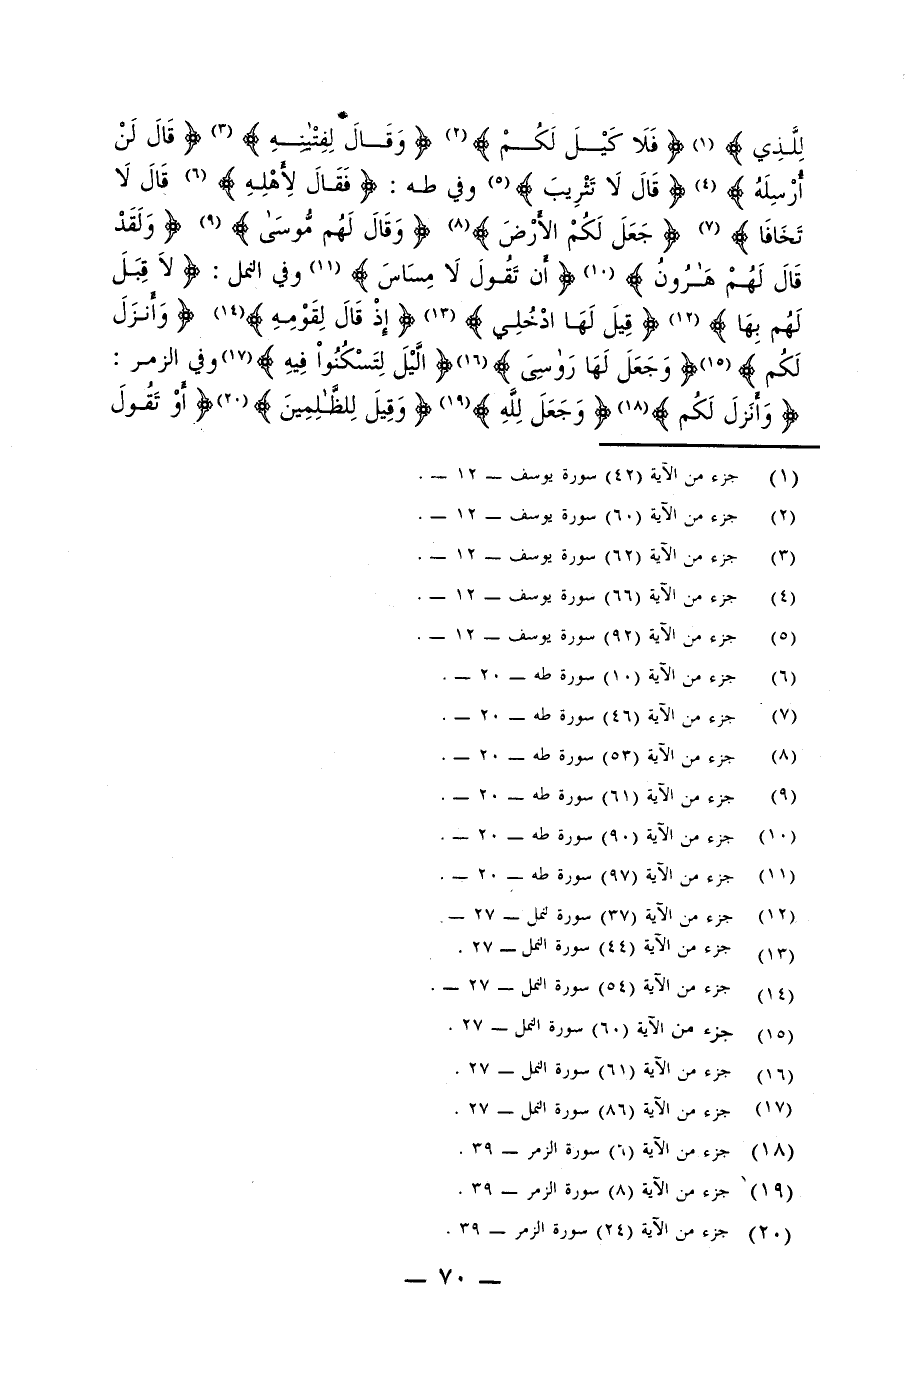 لِلَّذِي ﴾ (١) ﴿ فَلَا كَيْلَ لَكُمْ ﴾(٢) ﴿ وَقَالَ لِفِتْيَٰنِهِ ﴾ (٣) ﴿ قَالَ لَنْ
أُرْسِلَهُ ﴾ (٤) ﴿ قَالَ لَا تَثْرِيبَ ﴾(٥) وفي طه : ﴿ فَقَالَ لِأَهْلِهِ ﴾ (٦) قَالَ لَا
تَخَافَا ﴾ (٧) ﴿ جَعَلَ لَكُمُ الأَرْضَ ﴾(٨) ﴿ وَقَالَ لَهُم مُّوسَىٰ ﴾ (٩) ﴿ وَلَقَدْ
قَالَ لَهُمْ هَٰرُونُ ﴾ (١٠) ﴿ أَن تَقُولَ لَا مِسَاسَ ﴾ (١١) وفي النمل : ﴿ لاَ قِبَلَ
لَهُم بِهَا ﴾ (١٢) ﴿ قِيلَ لَهَا ادْخُلِي ﴾ (١٣) ﴿ إِذْ قَالَ لِقَوْمِهِ ﴾(١٤) ﴿ وَأَنزَلَ
لَكُم ﴾ (١٥)﴿ وَجَعَلَ لَهَا رَوَٰسِىَ ﴾ (١٦)﴿ الَّيْلَ لِتَسْكُنُواْ فِيهِ ﴾(١٧)وفي الزمر :
﴿ وَأَنزَلَ لَكُم ﴾(١٨)﴿ وَجَعَلَ لِلَّهِ ﴾(١٩)﴿ وَقِيلَ لِلظَّٰلِمِينَ ﴾(٢٠)﴿ أَوْ تَقُولَ
(١) جزء من الآية (٤٢) سورة يوسف — ١٢ — .
(٢) جزء من الآية (٦٠) سورة يوسف — ١٢ — .
(٣) جزء من الآية (٦٢) سورة يوسف — ١٢ — .
(٤) جزء من الآية (٦٦) سورة يوسف — ١٢ — .
(٥) جزء من الآية (٩٢) سورة يوسف — ١٢ — .
(٦) جزء من الآية (١٠) سورة طه — ٢٠ — .
(٧) جزء من الآية (٤٦) سورة طه — ٢٠ — .
(٨) جزء من الآية (٥٣) سورة طه — ٢٠ — .
(٩) جزء من الآية (٦١) سورة طه — ٢٠ — .
(١٠) جزء من الآية (٩٠) سورة طه — ٢٠ — .
(١١) جزء من الآية (٩٧) سورة طه — ٢٠ — .
(١٢) جزء من الآية (٣٧) سورة لنمل — ٢٧ — .
(١٣) جزء من الآية (٤٤) سورة النمل — ٢٧ .
(١٤) جزء من الآية (٥٤) سورة النمل — ٢٧ — .
(١٥) جزء من الآية (٦٠) سورة النمل — ٢٧ .
(١٦) جزء من الآية (٦١) سورة النمل — ٢٧ .
(١٧) جزء من الآية (٨٦) سورة النمل — ٢٧ .
(١٨) جزء من الآية (٦) سورة الزمر — ٣٩ .
(١٩) جزء من الآية (٨) سورة الزمر — ٣٩ .
(٢٠) جزء من الآية (٢٤) سورة الزمر — ٣٩ .
— ٧٠ —